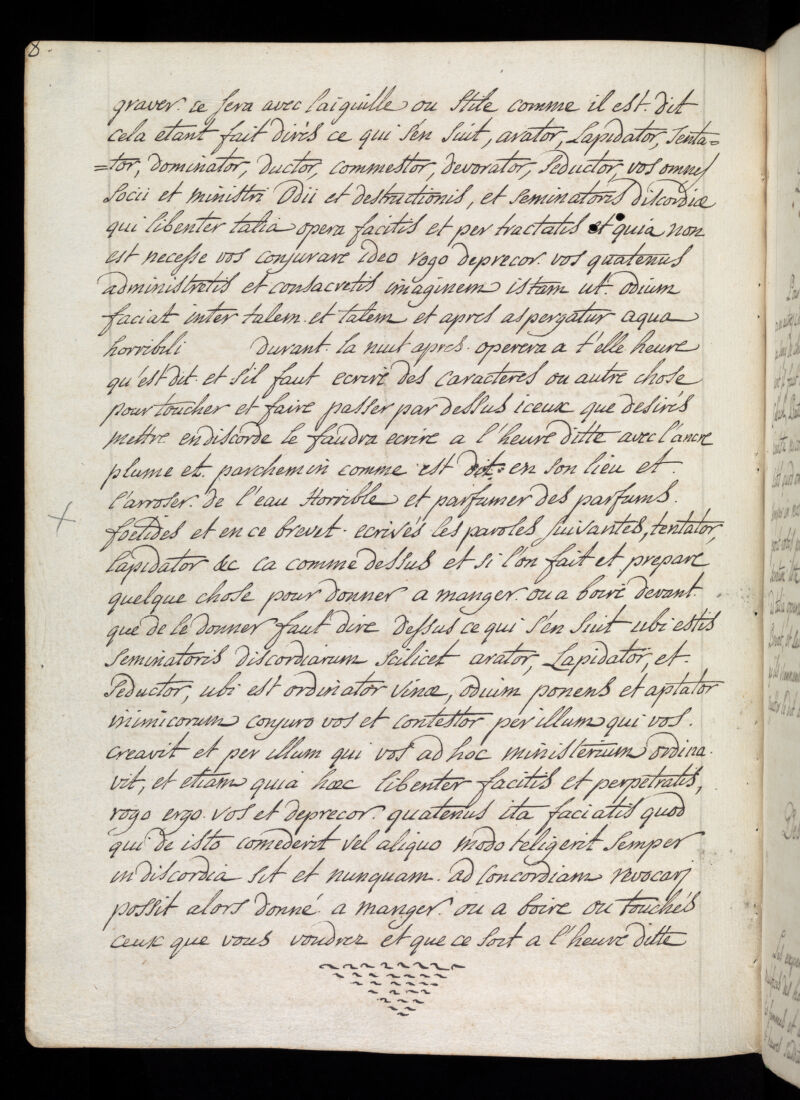 8.
graver. ce sera avec l'aiguille ou stile comme il est. dit
cela etant fait dirés ce qui s'en suit, arator, Lapidator, Tenta=
=tor, dominator, ductor, commestor, devorator, Seductor, vos omnes
Socii et ministri Odii et destructionis, et seminatoris discordiæ
qui libenter talia opera facitis et per tractatis et quia non
est necesse vos conjurare ideo rogo deprecor. vos quatenus
administretis et consacretis imaginem istam ut. odium
faciat inter talem. et talem et apres aspergatur aqua
horribili durant. la nuit apres. operera a t'elle heure
qu'est dit. et s'il faut ecrire des caracteres ou autre chose
pour toucher et faire passer par dessus iceux que desirés
mettre en discorde le faudra ecrire a l'heure ditte avec l'ancre
plume et. parchemin comme est dit en son lieu et.
l'arroser. de l'eau Horrible et parfumer des parfums.
foetides et en ce brevet. ecrivés les paroles suivantes, tentator,
lapidator &c ca comme dessus et si l'on fait et prepare
quelque chose pour donner a manger. ou a boire devant.
que de le donner faut dire dessus ce qui s'en suit ubi estis
Seminatoris discordiarum scilicet arator, Lapidator, et.
Seductor, ubi est ordinator vinæ, odium ponens et aptator
inimicorum conjuro vos et contestor per illum qui vos.
creavit et per illum qui vos ad hoc ministerium ordina.
vit, et etiam quia hæc libenter facitis et perpetratis,
rogo ergo. vos et deprecor. quatenus ita faciatis quod
qui de isto comederit vel aliquo modo teligerit semper
in discordia sit et nunquam. ad concordiam revocari
possit alors donné a manger. ou a boire ou touchés
ceux que vous voudrez et que ce soit a l'heure ditte